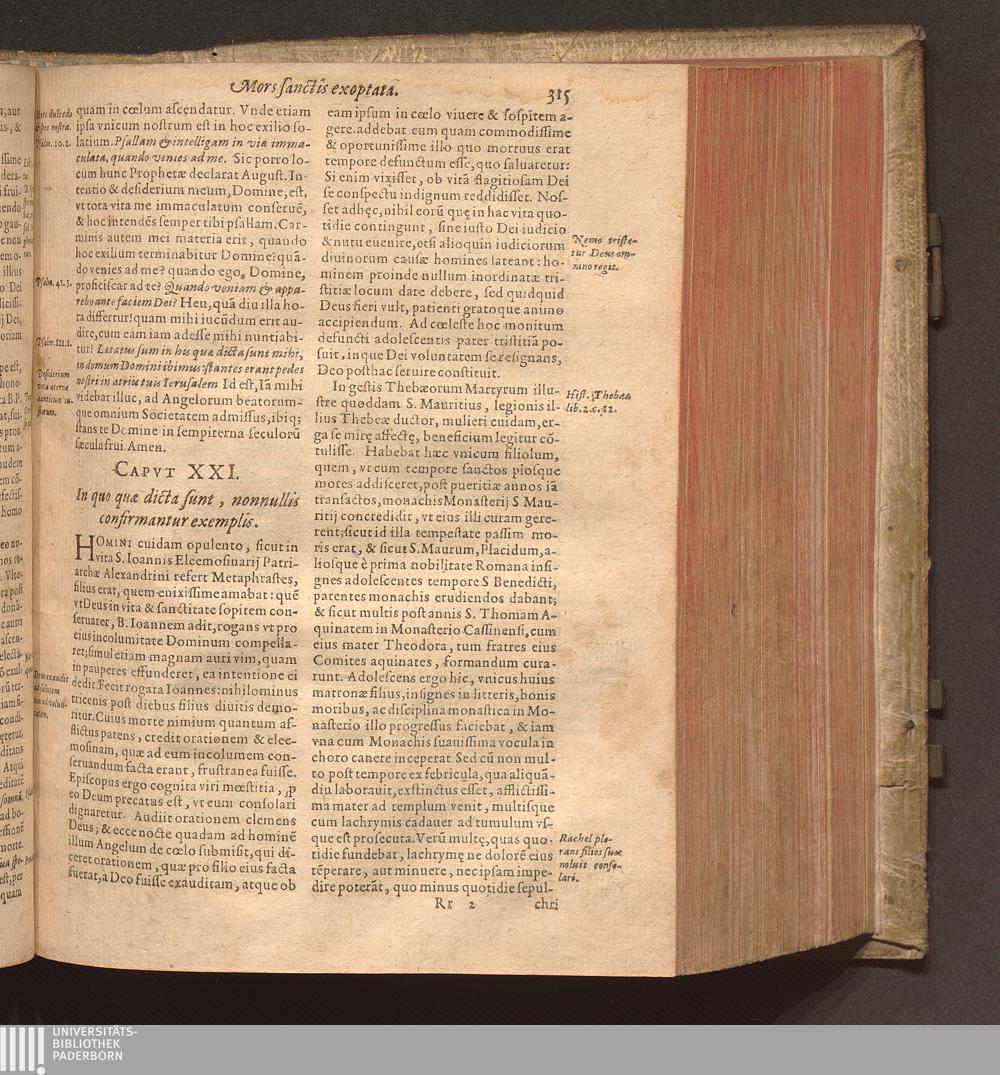 Mors sanctis exoptata.
315
quam in cœlum ascendatur. Vnde etiam
ipsa vnicum nostrum est in hoc exilio so-
latium. Psallam & intelligam in via imma-
culata, quando venies ad me. Sic porro lo-
cum hunc Prophetæ declarat August. In-
tentio & desiderium meum, Domine, est,
vt tota vita me immaculatum conseruē,
& hoc intendēs semper tibi psallam. Car-
minis autem mei materia erit, quando
hoc exilium terminabitur Domine? quā-
do venies ad me? quando ego, Domine,
proficiscar ad te? Quando veniam & appa-
rebo ante faciem Dei? Heu, quā diu illa ho-
ra differtur! quam mihi iucūdum erit au-
dire, cum eam iam adesse mihi nuntiabi-
tur! Lætatus sum in his quæ dicta sunt mihi,
in domum Domini ibimus: stantes erant pedes
nostri in atriis tuis Ierusalem Id est, Iā mihi
videbar illuc, ad Angelorum beatorum-
que omnium Societatem admissus, ibiq;
stans te Domine in sempiterna seculorū
sæcula frui. Amen.
CAPVT XXI.
In quo quæ dicta sunt, nonnullis
confirmantur exemplis.
HOMINI cuidam opulento, sicut in
vita S. Ioannis Eleemosinarij Patri-
archæ Alexandrini refert Metaphrastes,
filius erat, quem enixissime amabat: quē
vt Deus in vita & sanctitate sopitem con-
seruaret, B. Ioannem adit, rogans vt pro
eius incolumitate Dominum compella-
ret; simul etiam magnam auri vim, quam
in pauperes effunderet, ea intentione ei
dedit. Fecit rogata Ioannes: nihilominus
tricenis post diebus filius diuitis demo-
ritur. Cuius morte nimium quantum af-
flictus parens, credit orationem & elee-
mosinam, quæ ad eum incolumem con-
seruandum facta erant, frustranea fuisse.
Episcopus ergo cognita viri mœstitia, ꝓ
eo Deum precatus est, vt eum consolari
dignaretur. Audiit orationem clemens
Deus; & ecce nocte quadam ad hominē
illum Angelum de cœlo submisit, qui di-
ceret orationem, quæ pro filio eius facta
fuerat, a Deo fuisse exauditam, atque ob
Mors dulcedo
& spes nostra.
Psalm. 10.2.
Psalm. 41.3.
Psalm. 121.1.
Desiderium
vitæ æternæ
Deus exaudit
ad salutem
eam ipsum in cœlo viuere & sospitem a-
gere. addebat eum quam commodissime
& oportunissime illo quo mortuus erat
tempore defunctum esse, quo saluaretur:
Si enim vixisset, ob vitā flagitiosam Dei
se conspectu indignum reddidisset. Nos-
set adhęc, nihil eorū quę in hac vita quo-
tidie contingunt, sine iusto Dei iudicio
& nutu euenire, etsi alioquin iudiciorum
diuinorum causæ homines lateant: ho-
minem proinde nullum inordinatæ tri-
stitiæ locum dare debere, sed quidquid
Deus fieri vult, patienti gratoque animo
accipiendum. Ad cœleste hoc monitum
defuncti adolescentis pater tristitiā po-
suit, inque Dei voluntatem se resignans,
Deo posthac seruire constituit.
In gestis Thebæorum Martyrum illu-
stre quoddam S. Mauritius, legionis il-
lius Thebeæ ductor, mulieri cuidam, er-
ga se mirę affectę, beneficium legitur cō-
tulisse. Habebat hæc vnicum filiolum,
quem, vt cum tempore sanctos piosque
mores addisceret, post pueritiæ annos iā
transactos, monachis Monasterij S. Mau-
ritij concredidit, vt eius illi curam gere-
rent; sicut id illa tempestate passim mo-
ris erat, & sicut S. Maurum, Placidum, a-
liosque è prima nobilitate Romana insi-
gnes adolescentes tempore S Benedicti,
parentes monachis erudiendos dabant;
& sicut multis post annis S. Thomam A-
quinatem in Monasterio Cassinensi, cum
eius mater Theodora, tum fratres eius
Comites aquinates, formandum cura-
runt. Adolescens ergo hic, vnicus huius
matronæ filius, insignes in litteris, bonis
moribus, ac disciplina monastica in Mo-
nasterio illo progressus faciebat, & iam
vna cum Monachis suauissima vocula in
choro canere inceperat. Sed cū non mul-
to post tempore ex febricula, qua aliquā-
diu laborauit, exstinctus esset, afflictissi-
ma mater ad templum venit, multisque
cum lachrymis cadauer ad tumulum vs-
que est prosecuta. Verū multę, quas quo-
tidie fundebat, lachrymę ne dolorē eius
tēperare, aut minuere, nec ipsam impe-
dire poterāt, quo minus quotidie sepul-
Rr 2
chri
Nemo triste-
tur Deus om-
nino regit.
Hist. Thebæa
lib. 2. c. 12.
Rachel plo-
rans filios suos
noluit conso-
lari.
UNIVERSITÄTS-
BIBLIOTHEK
PADERBORN